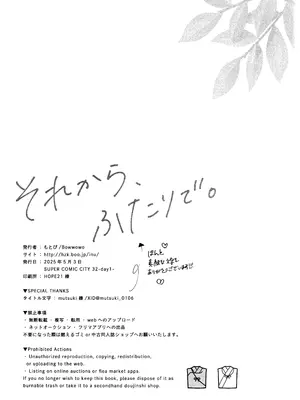 それから、
ふたりで。
発行者：もとび/Bowwowo
サイト：http://lluk.boo.jp/inu/
発行日：2025年5月3日
SUPER COMIC CITY 32-day1-
印刷所：HOPE21 様
ほんと
素敵な文字で
ありがとうございます!!
▼SPECIAL THANKS
タイトル文字：mutsuki 様 /XID@mutsuki_0106
▼禁止事項
・無断転載・複写・転用・webへのアップロード
・ネットオークション・フリマアプリへの出品
不要になった際は燃えるゴミor中古同人誌ショップへお願いいたします。
▼Prohibited Actions
・Unauthorized reproduction, copying, redistribution,
or uploading to the web.
・Listing on online auctions or flea market apps.
If you no longer wish to keep this book, please dispose of it as
burnable trash or take it to a secondhand doujinshi shop.